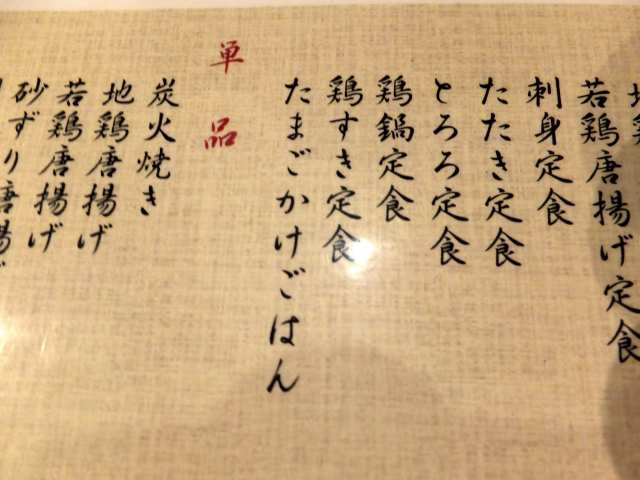 若鶏唐揚げ定食
刺身定食
たたき定食
とろろ定食
鶏鍋定食
鶏すき定食
たまごかけごはん
単品
炭火焼き
地鶏唐揚げ
若鶏唐揚げ
砂ずり唐揚げ